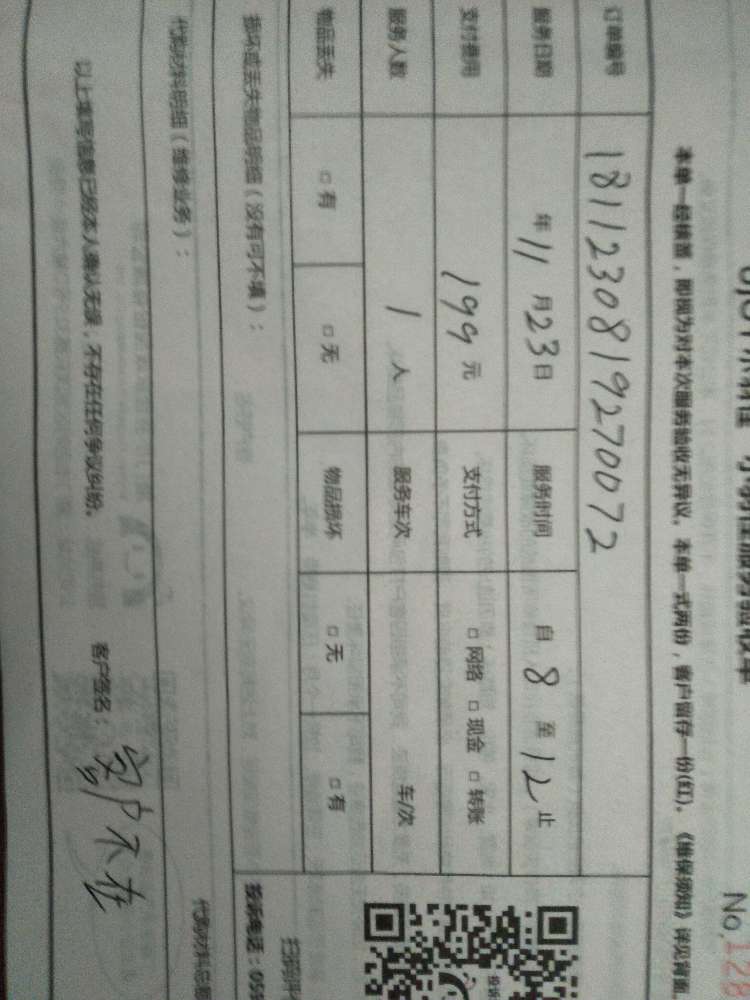 小哥服务验收单
No.128
本单一经填蓋，即视为对本次服务验收无异议。本单一式两份，客户留存一份(红)。《维保须知》详见背面
订单编号 1811230819270072
服务日期 年 11 月 23 日 服务时间 自 8 至 12 止
支付费用 199 元 支付方式 □ 网络 □ 现金 □ 转账
服务人数 1 人 服务车次 车/次
物品丢失 □ 有 □ 无 物品损坏 □ 无 □ 有
损坏或丢失物品明细（没有可不填）：
投诉电话：059
代购材料明细（维修业务）：
代购材料总额
以上填写信息已经本人确认无误，不存在任何争议纠纷。
客户签名： 客户不在